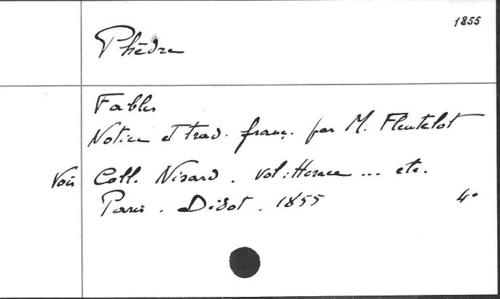 1855
Phèdre
Fables
Notice et trad. franç. par M. Fleutelot
Voir Coll. Nisard. vol: Horace ... etc.
Paris. Didot. 1855 4°